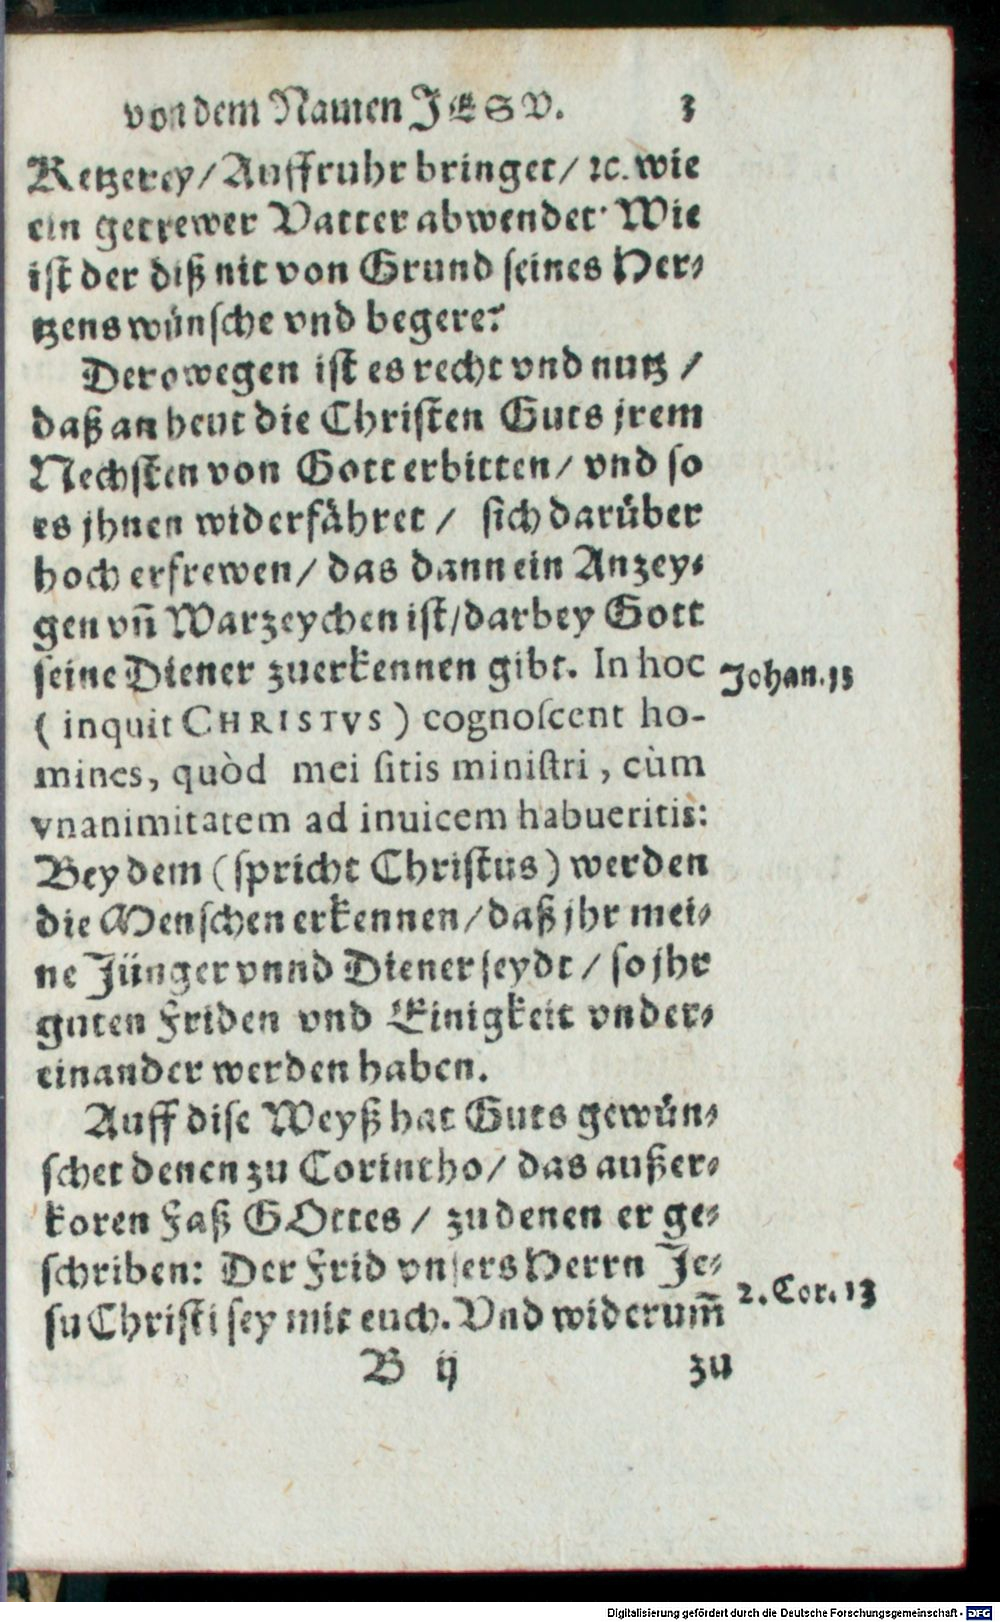 von dem Namen JESV. 3
Ketzerey / Auffruhr bringet / ꝛc. wie
ein getrewer Vatter abwendet? Wie
ist der diß nit von Grund seines Her⸗
tzens wünsche vnd begere?
Derowegen ist es recht vnd nutz /
daß an heut die Christen Guts jrem
Nechsten von Gott erbitten / vnd so
es jhnen widerfähret / sich darüber
hoch erfrewen / das dann ein Anzey⸗
gen vñ Warzeychen ist / darbey Gott
seine Diener zuerkennen gibt. In hoc
Johan. 13
( inquit CHRISTVS ) cognoſcent ho-
mines, quòd mei ſitis miniſtri, cùm
vnanimitatem ad inuicem habueritis:
Bey dem ( spricht Christus ) werden
die Menschen erkennen / daß jhr mei⸗
ne Jünger vnnd Diener seydt / so jhr
guten Friden vnd Einigkeit vnder⸗
einander werden haben.
Auff dise Weyß hat Guts gewün⸗
schet denen zu Corintho / das außer⸗
koren Faß GOttes / zu denen er ge⸗
schriben: Der Frid vnsers Herrn Je⸗
2. Cor. 13
su Christi sey mit euch. Vnd widerum̃
B ij zu
Digitalisierung gefördert durch die Deutsche Forschungsgemeinschaft - DFG